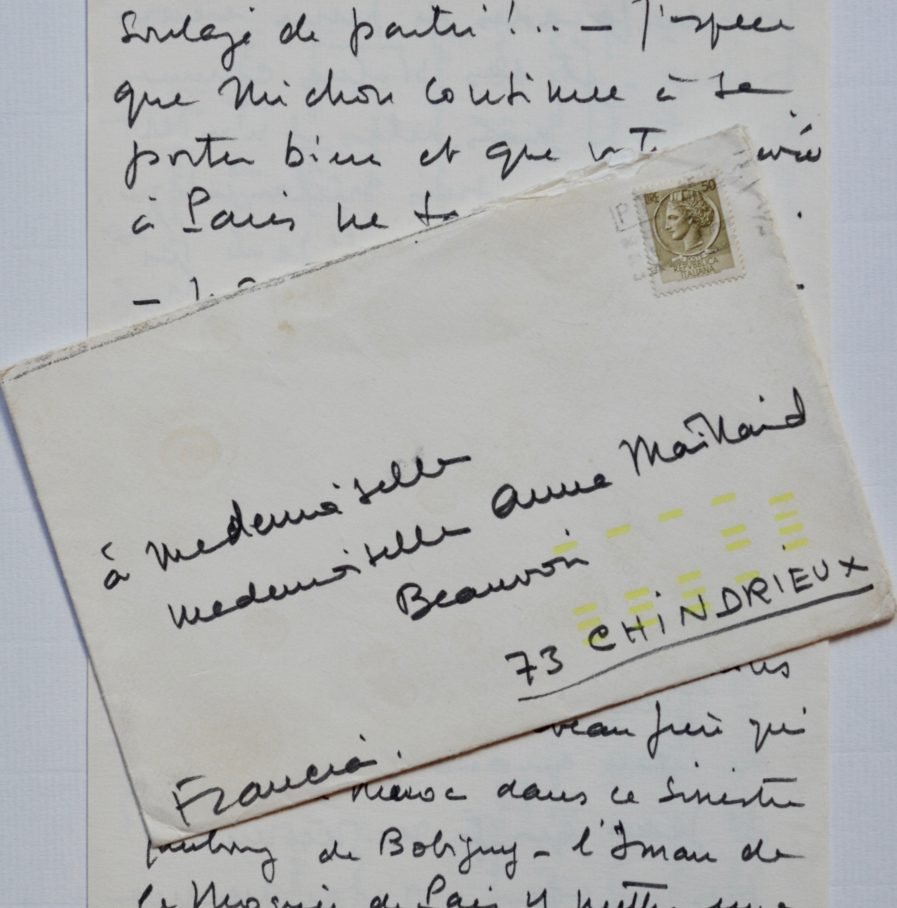 soulagé de partir!.. – J'espère
que Michon continue à se
porter bien et que
à Paris ne
LIRE 50
REPUBBLICA
ITALIANA
à Mademoiselle
Mademoiselle Anne Maillard
Beauvoir
73 CHINDRIEUX
Francia.
frère qui
Maroc dans ce sinistre
faubourg de Bobigny – l'Iman de
la Mosquée de Paris